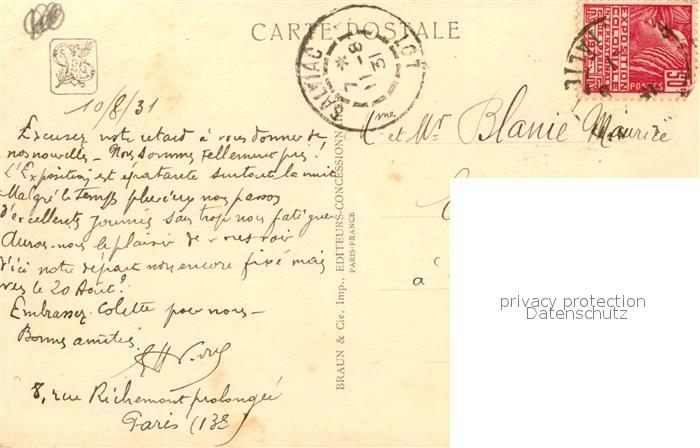 CARTE POSTALE
SALVIAC LOT
7 *
11 - 8
31
EXPOSITION
COLONIALE
INTERNATIONALE
POSTES
10/8/31
Excusez notre retard à vous donner de
nos nouvelles - Nous sommes tellement pris!
L'Exposition est épatante surtout la nuit
Malgré le temps pluvieux nous passons
d'excellentes journées sans trop nous fatiguer
Aurons-nous le plaisir de vous voir
d'ici notre départ non encore fixé mais
vers le 20 Août?
Embrassez Colette pour nous -
Bonnes amitiés
8, rue Richemont prolongée
Paris (13E)
BRAUN & Cie, Imp., EDITEURS-CONCESSIONN
PARIS-FRANCE
Mme et Mr Blanié Maurice
à
privacy protection
Datenschutz